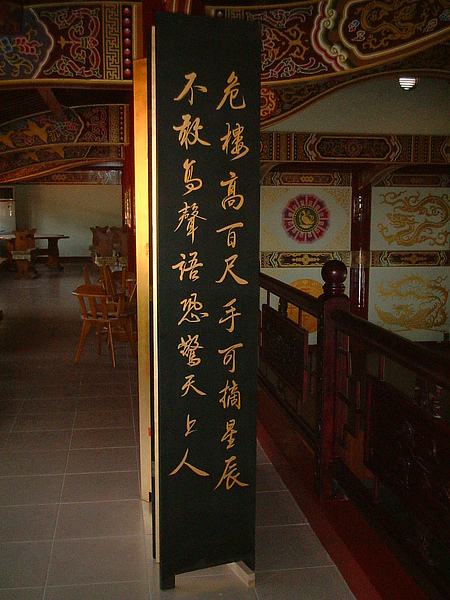 危樓高百尺手可摘星辰
不敢高聲語恐驚天上人